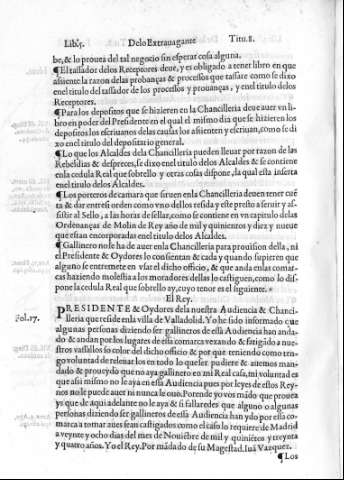 Lib. 5. Delo Extrauagante Titu. 8.
be, & lo prouea del tal negocio sin esperar cosa alguna.
¶ El tassador delos Receptores deue, y es obligado a tener libro en que
assiente la razon delas probanças & processos que tassare como se dixo
en el titulo del tassador de los processos y prouanças, y en el titulo delos
Receptores.
¶ Para los depositos que se hizieren en la Chancilleria deue auer vn li-
bro en poder del Presidente en el qual el mismo dia que se hizieren los
depositos los escriuanos delas causas los assienten y escriuan, como se di
xo en el titulo del depositario general.
¶ Lo que los Alcaldes dela Chancilleria pueden lleuar por razon de las
Rebeldias & despreces, se dixo en el titulo delos Alcaldes & se contiene
en la cedula Real que sobrello y otras cosas dispone, la qual esta inserta
en el titulo delos Alcaldes.
¶ Los porteros de camara que siruen en la Chancilleria deuen tener cuē
ta & dar entre si orden como vno dellos resida y este presto a seruir y as-
sistir al Sello, a las horas de sellar, como se contiene en vn capitulo delas
Ordenanças de Molin de Rey año de mil y quinientos y diez y nueue
que estan encorporadas en el titulo delos Alcaldes.
¶ Gallinero no le ha de auer en la Chancilleria para prouision della, ni
el Presidente & Oydores lo consientan & cada y quando supieren que
alguno se entremete en vsar el dicho officio, & que anda en las comar-
cas haziendo molestia a los moradores dellas lo castiguen, como lo dis-
pone la cedula Real que sobrello ay, cuyo tenor es el siguiente.
El Rey.
PRESIDENTE & Oydores dela nuestra Audiencia & Chanci-
Fol. 17. lleria que reside en la villa de Valladolid. Yo he sido informado que
algunas personas diziendo ser gallineros de essa Audiencia han anda-
do & andan por los lugares de essa comarca vexando & fatigado a nue-
stros vassallos so color del dicho officio & por que teniendo como ten-
go voluntad de releuar los en todo lo que ser pudiere & auemos man-
dado & proueydo que no aya gallinero en mi Real casa, mi voluntad es
que assi mismo no le aya en essa Audiencia pues por leyes de estos Rey-
nos no le puede auer ni nunca le ouo. Porende yo vos mādo que prouea
ys que de aqui adelante no le aya & si fallaredes que alguno o algunas
personas diziendo ser gallineros de essa Audiencia han ydo por essa co-
marca a tomar aues sean castigados como el caso lo requiere de Madrid
a veynte y ocho dias del mes de Nouiēbre de mil y quiniētos y treynta
y quatro años. Yo el Rey. Por mādado de su Magestad. Iuā Vazquez.
¶ Los